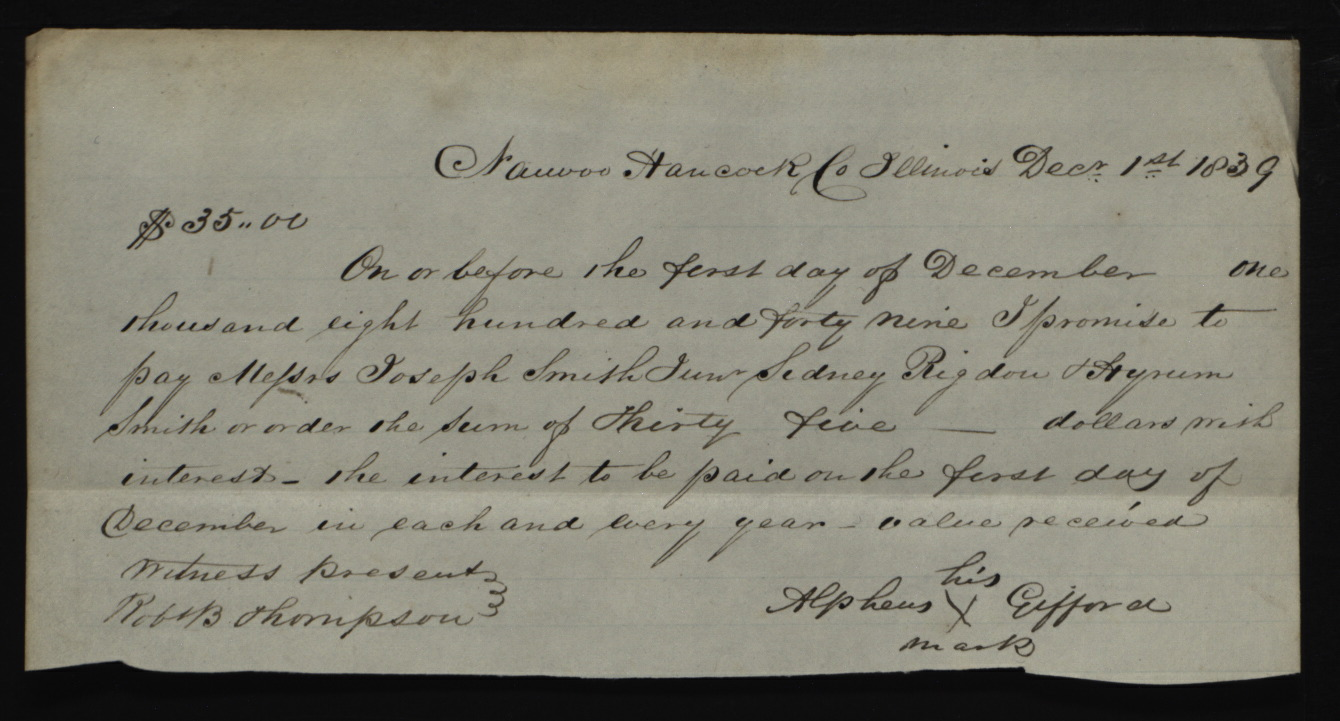 Nauvoo Hancock Co Illinois Decr. 1st 1839
$35,,00
On or before the first day of December one
thousand eight hundred and forty nine I promise to
pay Messrs Joseph Smith Junr Sidney Rigdon & Hyrum
Smith or order the sum of Thirty five — dollars with
interest - the interest to be paid on the first day of
December in each and every year - value received
Witness present
Robt B Thompson
his
Alpheus X Gifford
mark